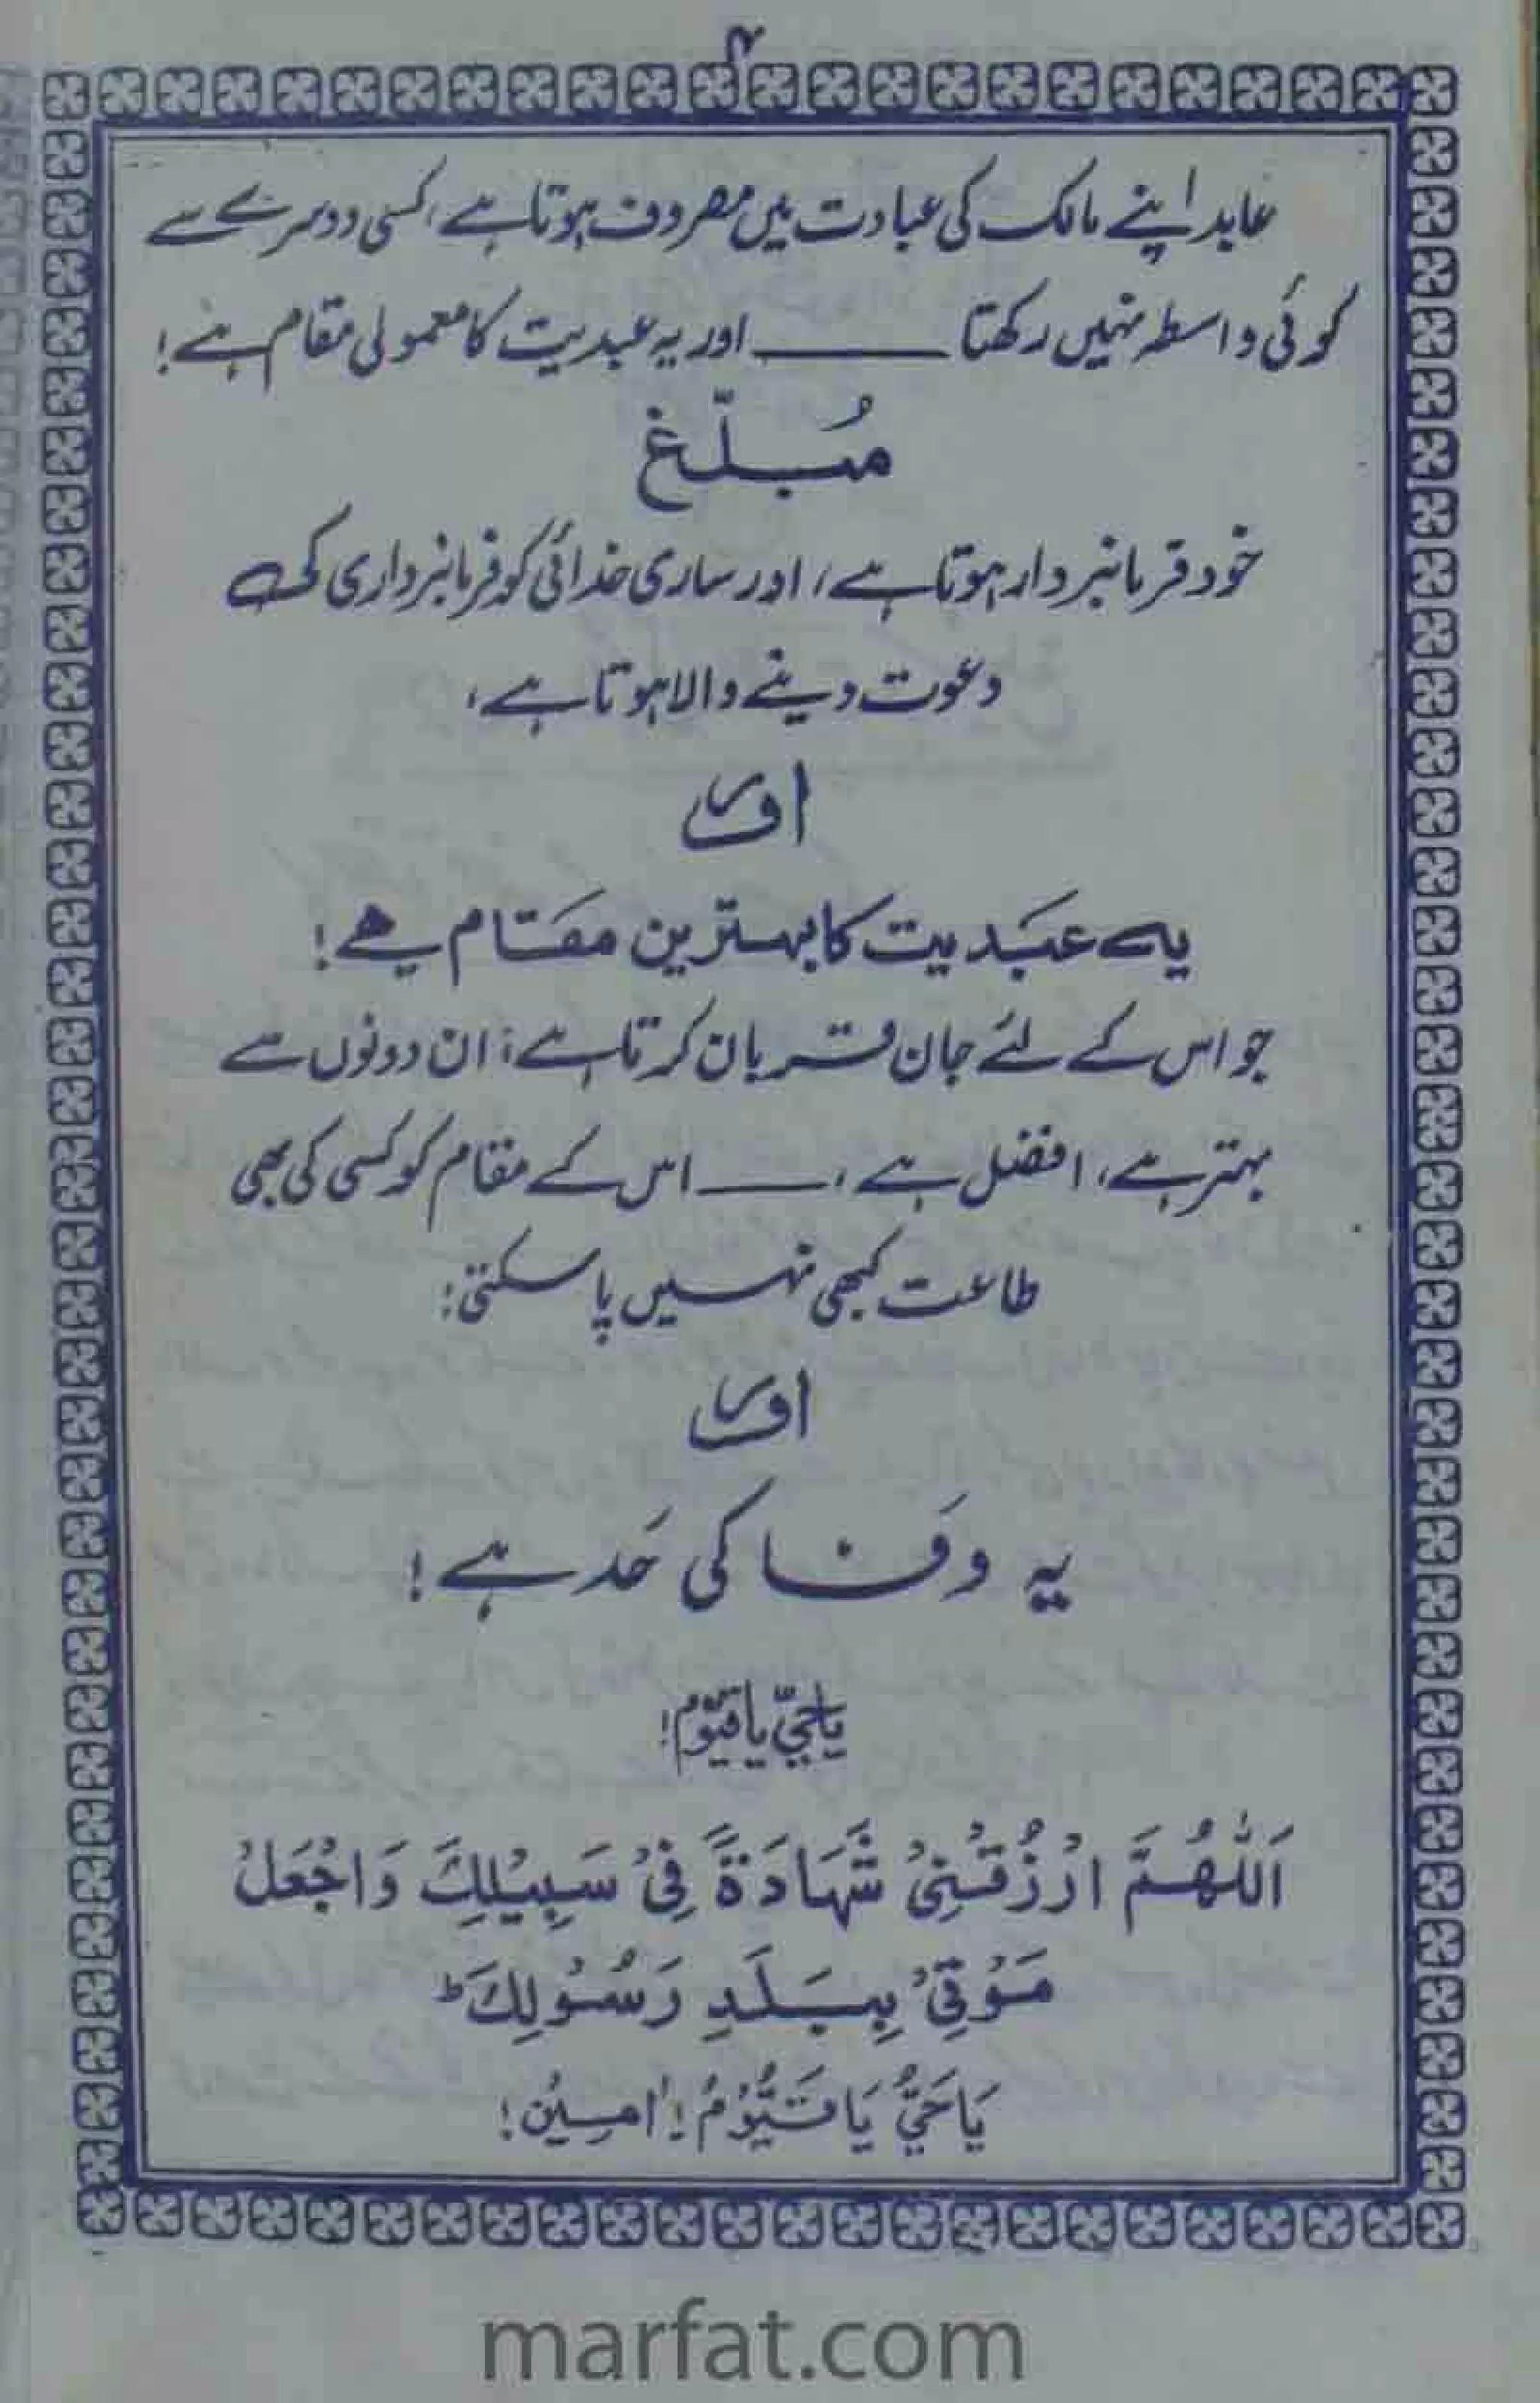 ۴
عابد اپنے مالک کی عبادت میں مصروف ہوتا ہے، کسی دوسرے سے
کوئی واسطہ نہیں رکھتا ــــــــ اور یہ عبدیت کا معمولی مقام ہے!
مُبلّغ
خود فرمانبردار ہوتا ہے، اور ساری خدائی کو فرمانبرداری کی
دعوت دینے والا ہوتا ہے،
اور
یہ عبَدیت کا بہترین مقَام ہے!
جو اس کے لئے جان قربان کرتا ہے، ان دونوں سے
بہتر ہے، افضل ہے، ــــــــ اس کے مقام کو کسی کی بھی
طاعت کبھی نہیں پا سکتی:
اور
یہ وفَا کی حَد ہے!
یا حیّ یا قیّوم!
اَللّٰهُمَّ ارْزُقْنِیْ شَهَادَةً فِیْ سَبِیْلِكَ وَاجْعَلْ
مَوْتِیْ بِبَلَدِ رَسُوْلِكَ ط
یَا حَیُّ یَا قَیُّوْمُ! اٰمِیْن!
marfat.com